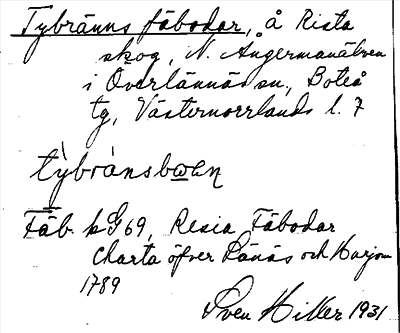 Tybränns fäbodar, å Rista
skog, N. Ångermanälven
i Överlännäs sn, Boteå
tg, Västernorrlands l. 7
Fäb. kG69, Resia Fäbodar
Charta öfver Länäs och
1789
Sven Hiller 1931